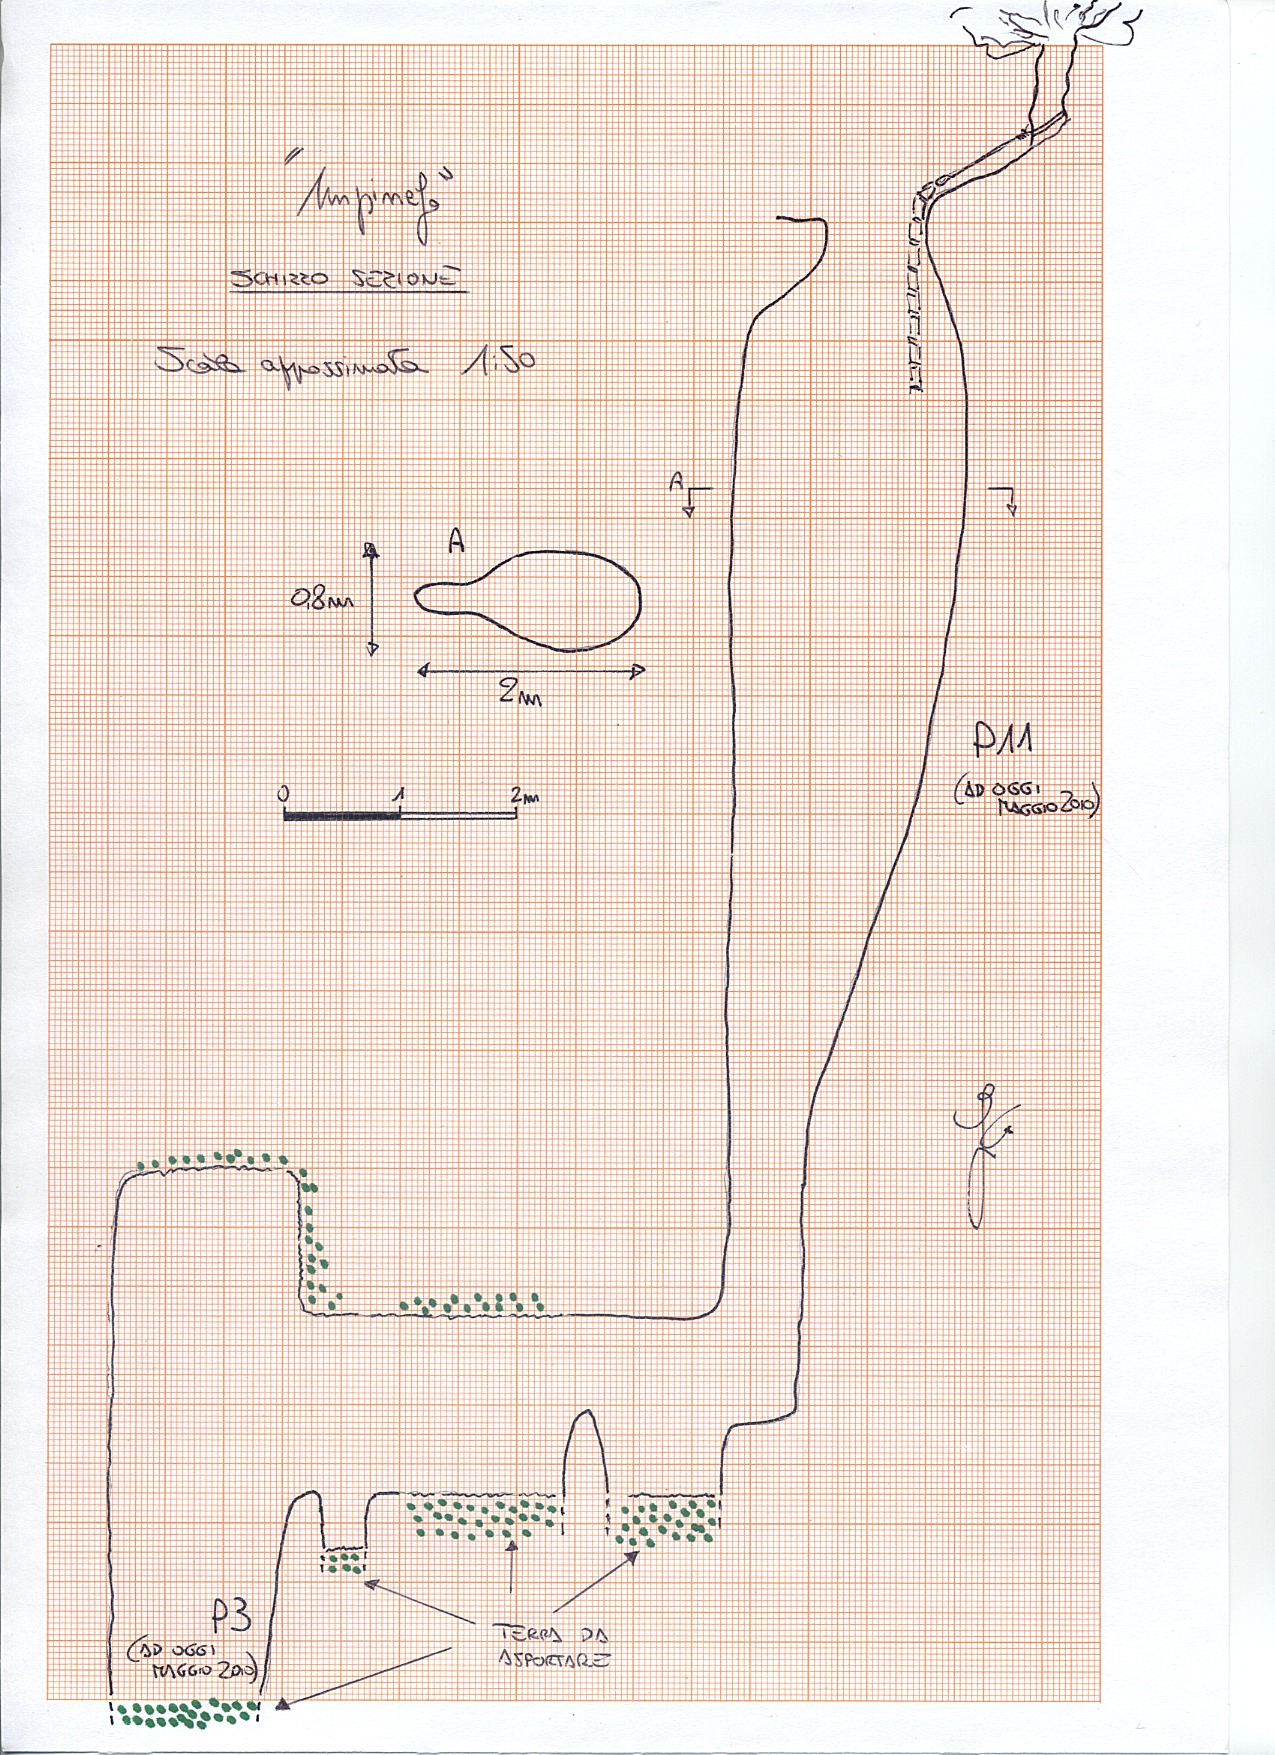 SCHIZZO SEZIONE
Scala appossimata 1:50
A
A
0,8m
2m
0 1 2m
P11
(AD OGGI
MAGGIO 2010)
P3
(AD OGGI
MAGGIO 2010)
TERRA DA
ASPORTARE